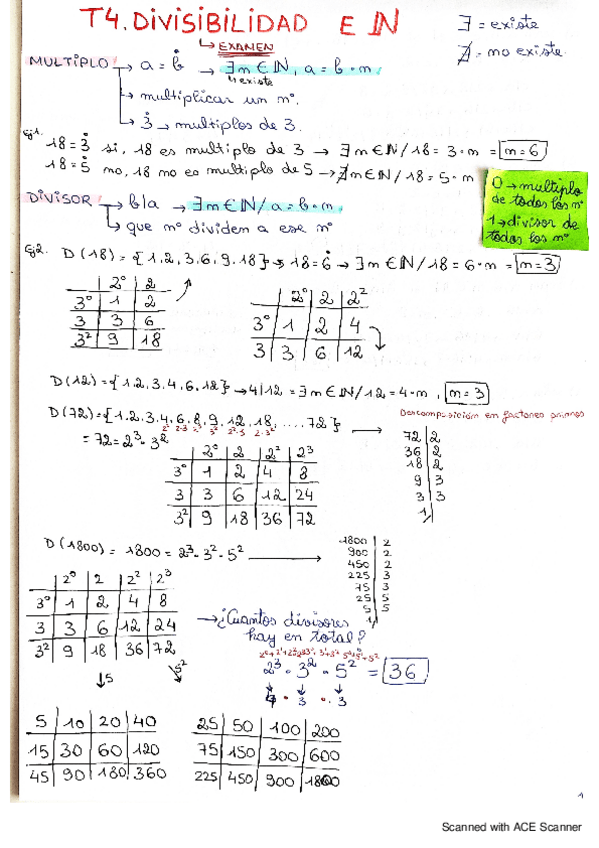 T4. DIVISIBILIDAD E ℕ
↳ EXAMEN
∃ = existe
∄ = no existe.
MULTIPLO → a = ḃ → ∃ m ∈ ℕ, a = b · m
↳ existe
↳ multiplicar un nº.
↳ 3̇ → multiplos de 3.
Ej1. 18 = 3̇ si, 18 es multiplo de 3 → ∃ m ∈ ℕ / 18 = 3 · m = m = 6
18 = 5̇ no, 18 no es multiplo de 5 → ∄ m ∈ ℕ / 18 = 5 · m
0 → multiplo
de todos los nº
1 → divisor de
todos los nº
DIVISOR → b|a → ∃ m ∈ ℕ / a = b · m
↳ que nº dividen a ese nº
Ej2. D(18) = {1, 2, 3, 6, 9, 18} → 18 = 6̇ → ∃ m ∈ ℕ / 18 = 6 · m = m = 3
2⁰ 2
3⁰ 1 2
3 3 6
3² 9 18
2⁰ 2 2²
3⁰ 1 2 4
3 3 6 12
D(12) = {1, 2, 3, 4, 6, 12} → 4|12 = ∃ m ∈ ℕ / 12 = 4 · m, m = 3
D(72) = {1, 2, 3, 4, 6, 8, 9, 12, 18, .... 72}
= 72 = 2³ · 3²
Descomposición en factores primos
72 2
36 2
18 2
9 3
3 3
1
2⁰ 2 2² 2³
3⁰ 1 2 4 8
3 3 6 12 24
3² 9 18 36 72
D(1800) = 1800 = 2³ · 3² · 5²
1800 2
900 2
450 2
225 3
75 3
25 5
5 5
1
2⁰ 2 2² 2³
3⁰ 1 2 4 8
3 3 6 12 24
3² 9 18 36 72
↓5 5²
→ ¿Cuantos divisores
hay en total?
2³ · 3² · 5² = 36
4 · 3 · 3
5 10 20 40
15 30 60 120
45 90 180 360
25 50 100 200
75 150 300 600
225 450 900 1800
1
Scanned with ACE Scanner